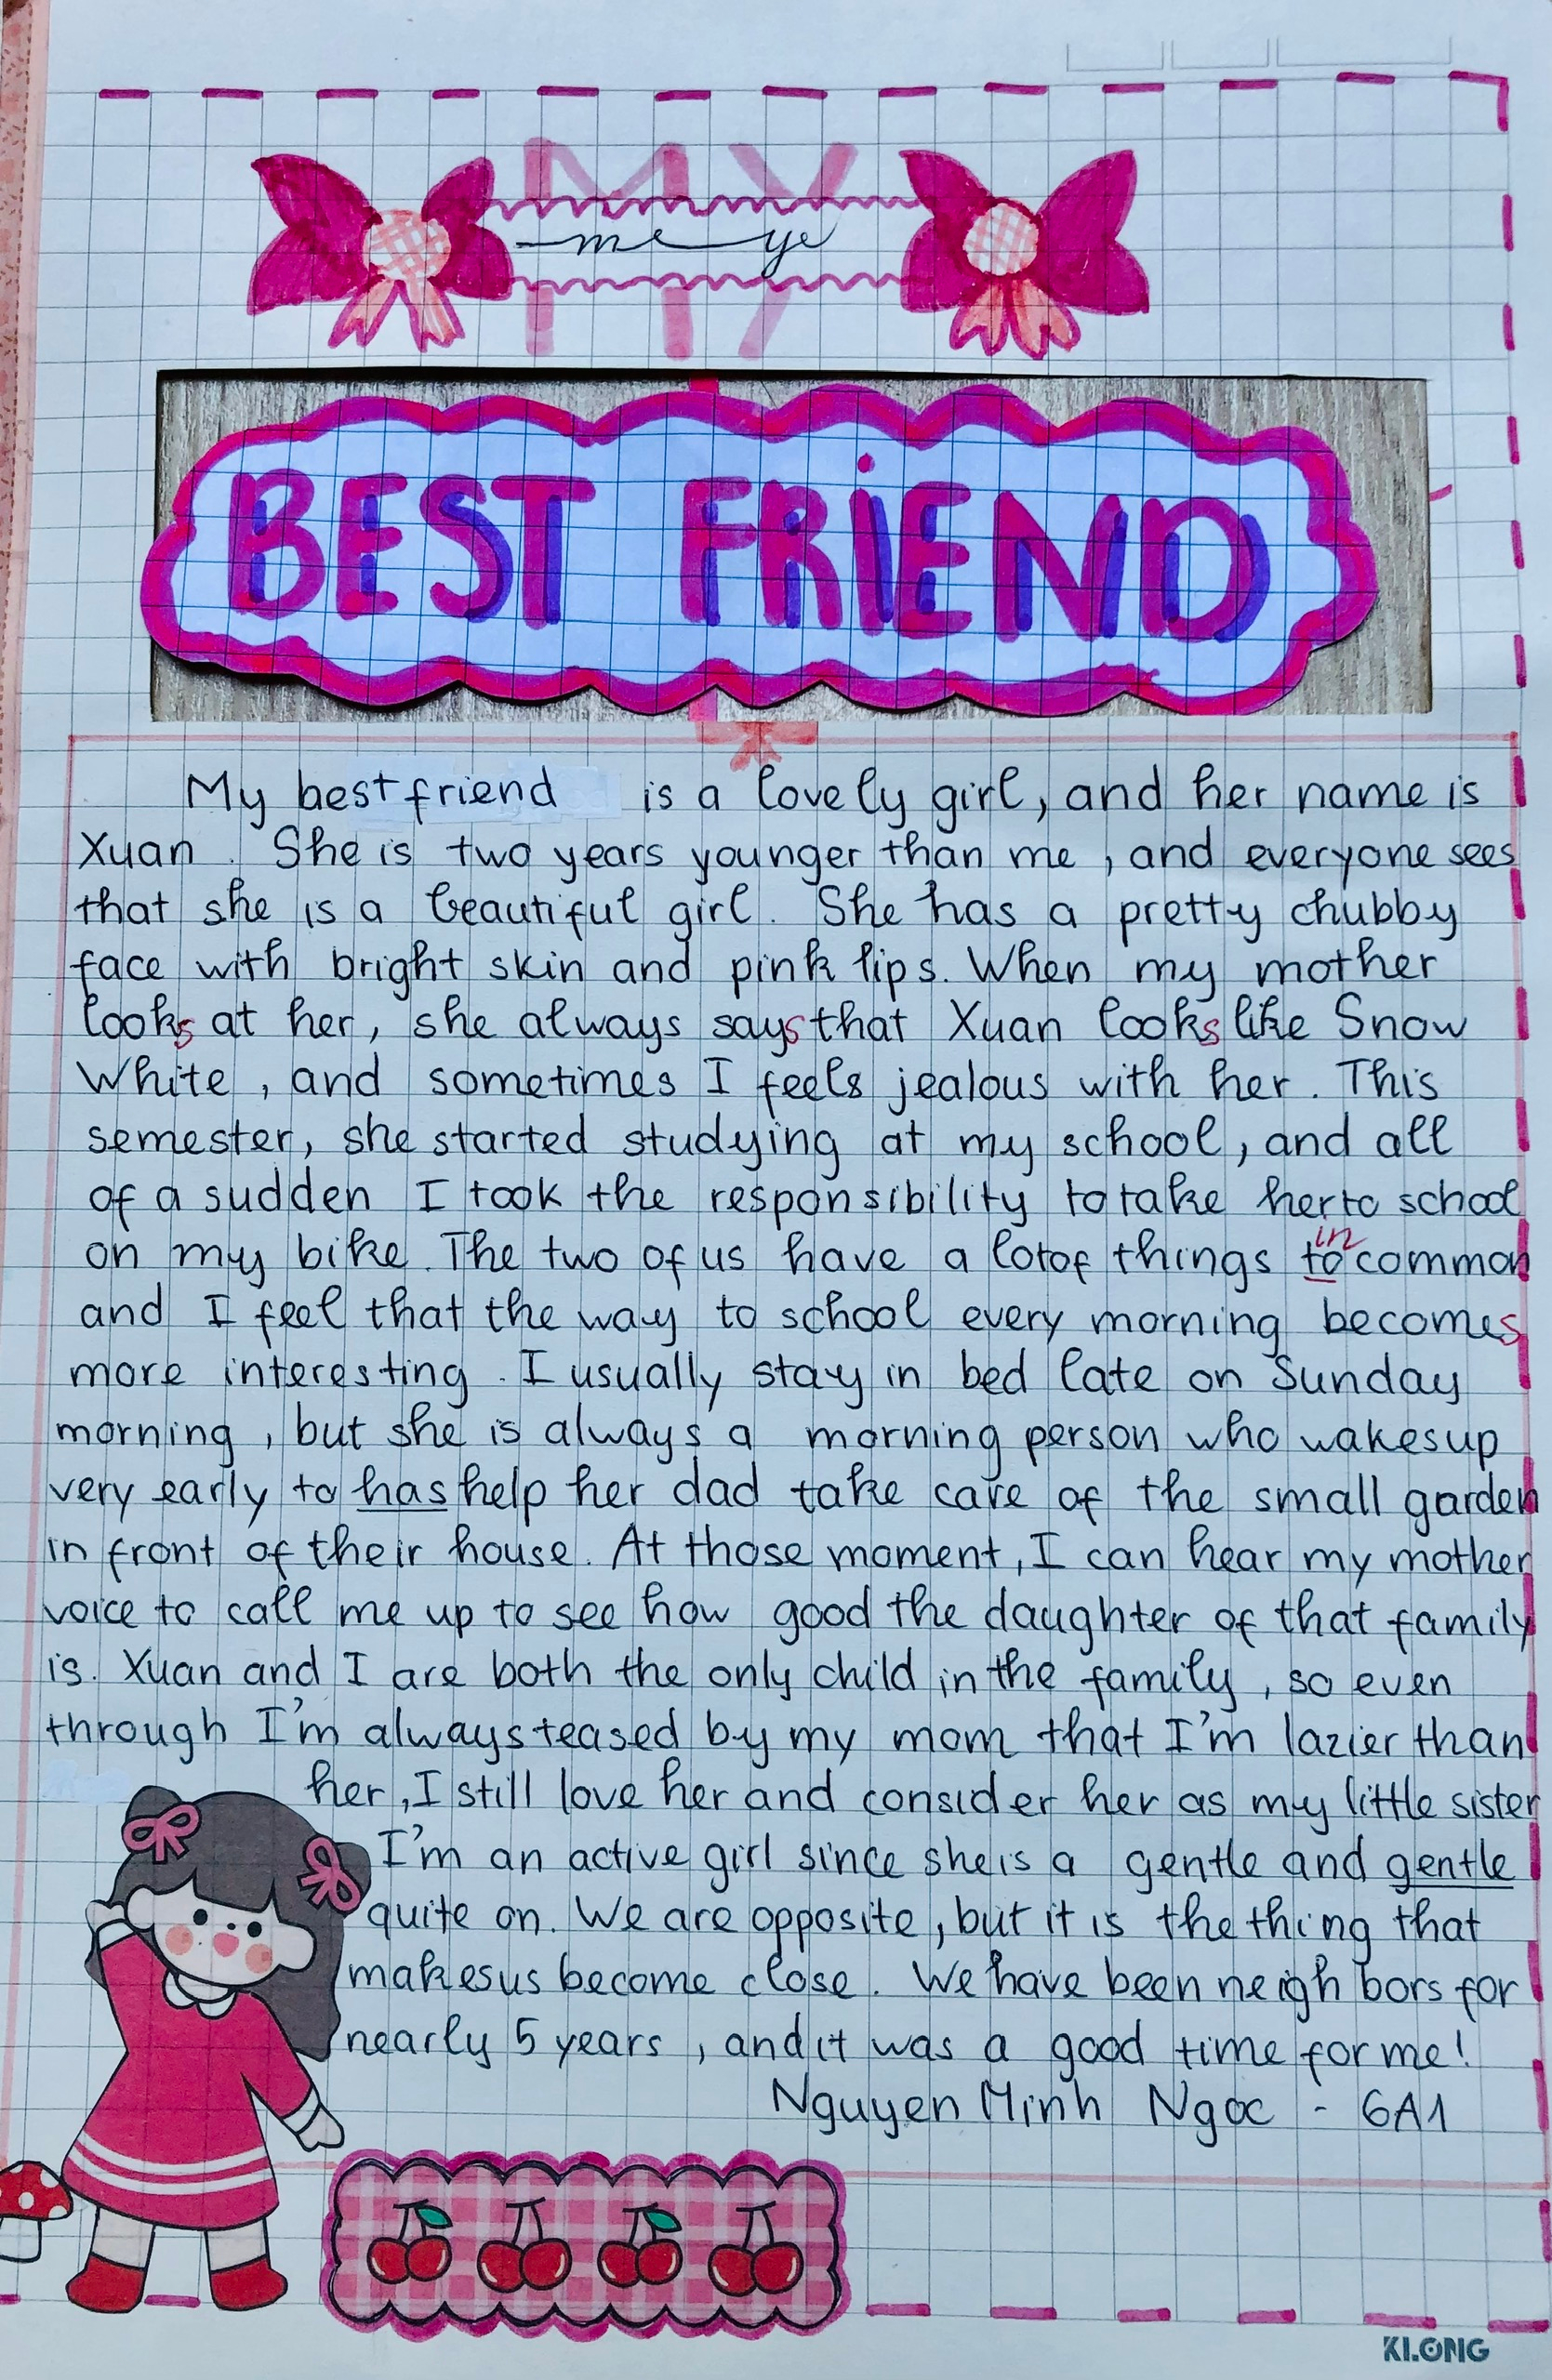 MY
me ye
BEST FRiEND
My best friend is a lovely girl, and her name is
Xuan. She is two years younger than me, and everyone sees
that she is a beautiful girl. She has a pretty chubby
face with bright skin and pink lips. When my mother
looks at her, she always says that Xuan looks like Snow
White, and sometimes I feels jealous with her. This
semester, she started studying at my school, and all
of a sudden I took the responsibility to take her to school
on my bike. The two of us have a lot of things to in common
and I feel that the way to school every morning becomes
more interesting. I usually stay in bed late on Sunday
morning, but she is always a morning person who wakes up
very early to has help her dad take care of the small garden
in front of their house. At those moment, I can hear my mother
voice to call me up to see how good the daughter of that family
is. Xuan and I are both the only child in the family, so even
through I'm always teased by my mom that I'm lazier than
her, I still love her and consider her as my little sister
I'm an active girl since she is a gentle and gentle
quite on. We are opposite, but it is the thing that
makes us become close. We have been neighbors for
nearly 5 years, and it was a good time for me!
Nguyen Minh Ngoc - 6A1
KLONG